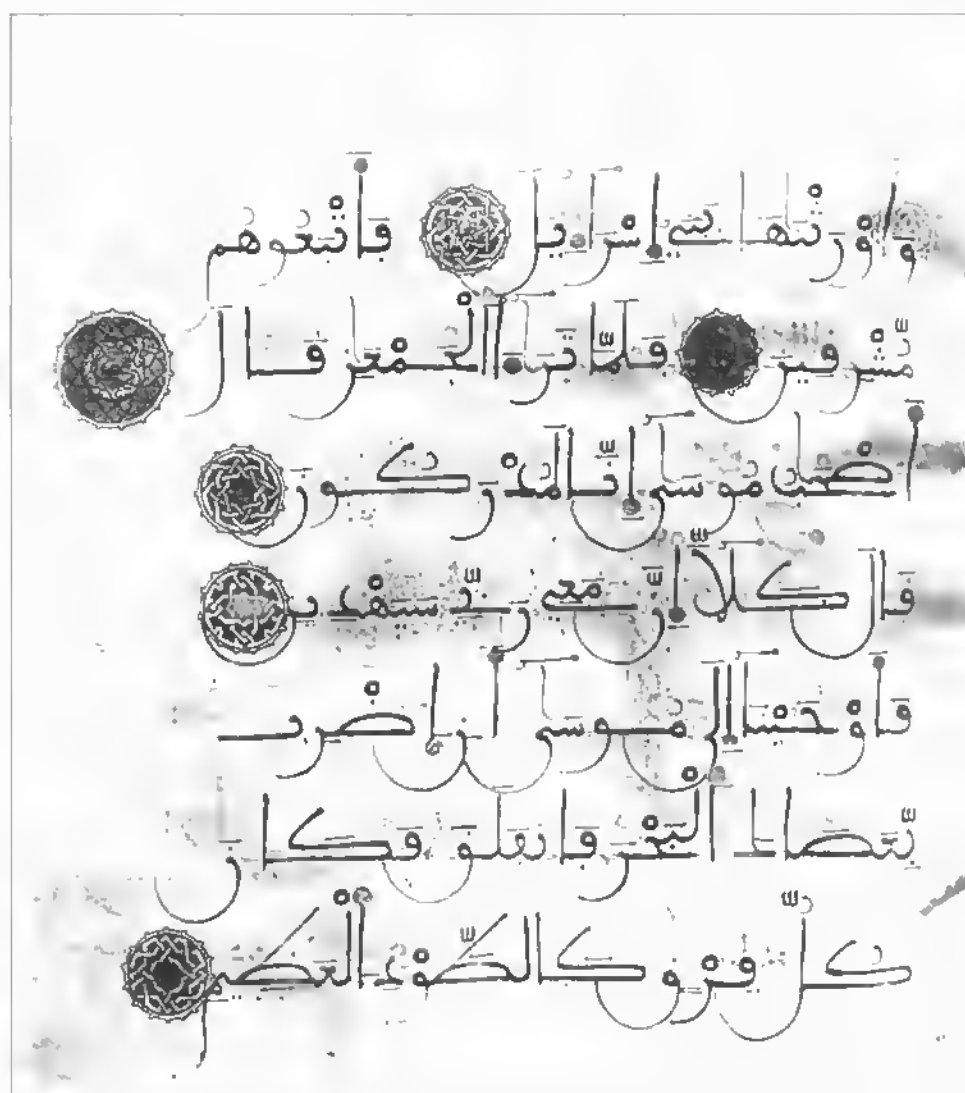 وأورثنها بني إسراءيل فأتبعوهم
مشرقين فلما ترءا الجمعن قال
أصحب موسى إنا لمدركون
قال كلا إن معي ربي سيهدين
فأوحينا إلى موسى أن اضرب
بعصاك البحر فانفلق فكان
كل فرق كالطود العظيم